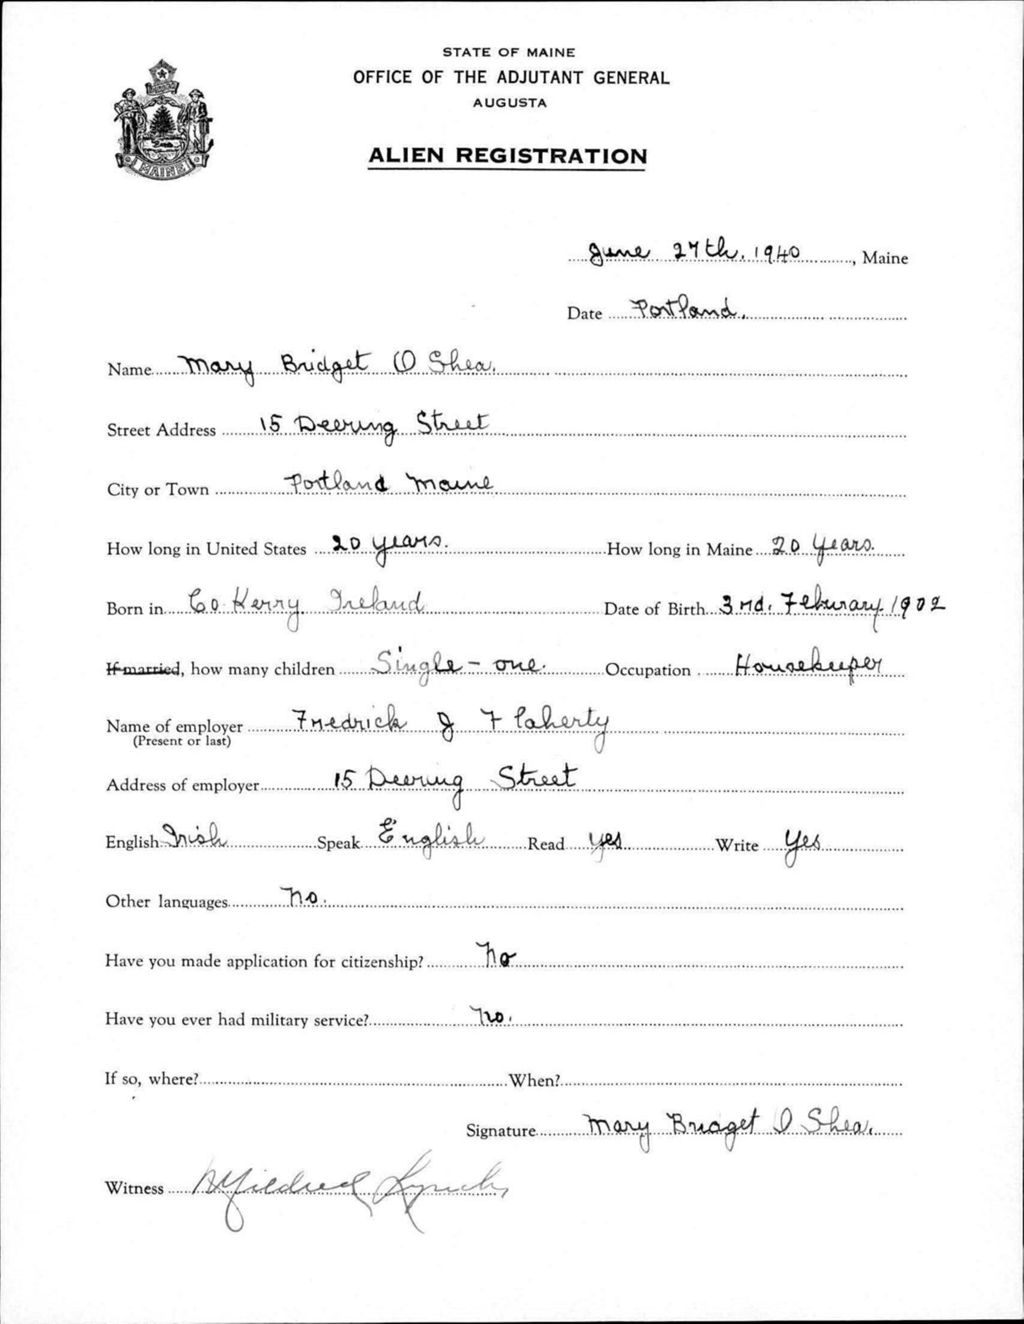 STATE OF MAINE
OFFICE OF THE ADJUTANT GENERAL
AUGUSTA
ALIEN REGISTRATION
MAINE
June 27th. 1940, Maine
Date Portland.
Name Mary Bridget O Shea.
Street Address 15 Deering Street
City or Town Portland Maine
How long in United States 20 years. How long in Maine 20 Years.
Born in Co Kerry Ireland Date of Birth 3rd. Feburary 1902
If married, how many children Single - one. Occupation Housekeeper
Name of employer Fredrick J Flaherty
(Present or last)
Address of employer 15 Deering Street
English Irish Speak English Read yes Write Yes
Other languages no.
Have you made application for citizenship? No
Have you ever had military service? No.
If so, where? When?
Signature Mary Bridget O Shea.
Witness Mildred Lynch